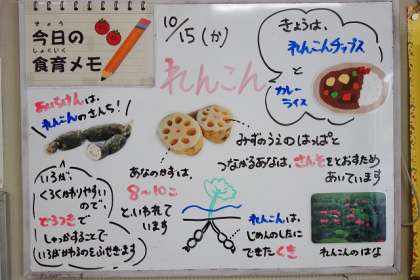 きょう しょくいく
今日の
食育メモ
10/15(か)
れんこん
きょうは、
れんこんチップス
と
カレー
ライス
あいちけんは、
れんこんのさんち!
みずのうえのはっぱと
つながるあなは、さんそをとおすため
あいています
あなのかずは、
8〜10こ
といわれて
います
いろが、
くろくかわりやすい
ので、
どろつきで
しゅっかすることで
いろがかわるのをふせぎます
れんこんは、
じめんのしたに
できたくき
れんこんのはな